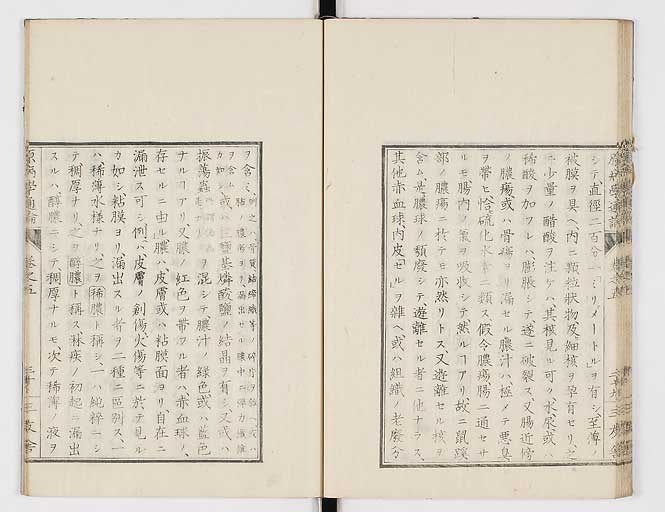 原病學通論
シテ直徑二百分一ミリメートル」ヲ有シ、至薄ノ
被膜ヲ具ヘ、内ニ顆粒狀物及細核ヲ孕有セリ、之
ニ少量ノ醋酸ヲ注ケハ、其核見ル可ク、水尿或ハ
稀酸ヲ加フレハ、膨脹シテ遂ニ破裂ス、又腸近傍
ノ膿瘍或ハ骨瘍ヨリ漏セル膿汁ハ極メテ悪臭
ヲ帶ヒ恰硫化水素ニ類ス、假令膿瘍腸ニ通セサ
ルモ腸内ノ氣ヲ吸收シテ然ルヿアリ、故ニ鼠蹊
部ノ膿瘍ニ於テモ亦然リトス、又遊離セル核ヲ
含ム、是膿球ノ頽廢シテ、遊離セル者ニ他ナラス、
其他赤血球、内皮セル」ヲ雜ヘ、或ハ組織ノ老廢分
ヲ含ム
振蕩蟲ヲ混シテ膿汁ノ綠色或ハ藍色
ナルヿアリ、又膿ノ紅色ヲ帶フル者ハ赤血球ノ
存セルニ由ル、膿ハ皮膚或ハ粘膜面ヨリ自在ニ
漏泄ス可シ、例ハ皮膚ノ創傷火傷等ニ於テ見ル
カ如シ、粘膜ヨリ漏出スル者ヲ二種ニ區別ス、一
ハ稀薄水樣ナリ、之ヲ稀膿ト稱シ、一ハ純粹ニシ
テ稠厚ナリ、之ヲ醇膿ト稱ス、淋疾ノ初起ニ漏出
スルハ、醇膿ニシテ稠厚ナルモ、次テ稀薄ノ液ヲ
原病學通論
卷之五
三友舎